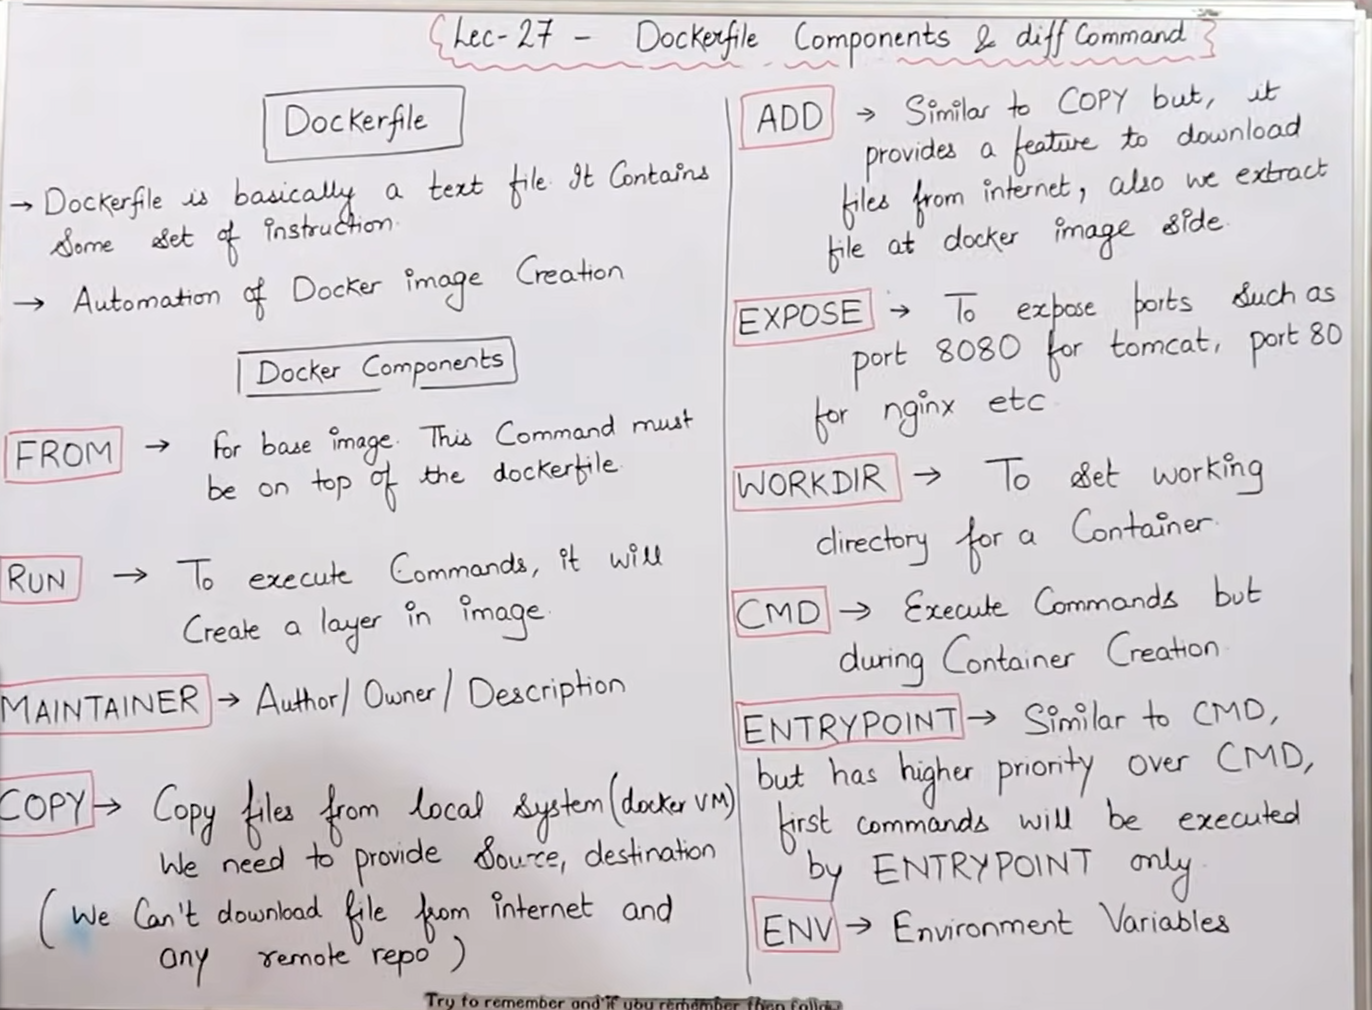 Lec-27 - Dockerfile Components & diff Command
Dockerfile
→ Dockerfile is basically a text file. It Contains
Some set of instruction.
→ Automation of Docker image Creation
Docker Components
FROM → for base image. This Command must
be on top of the dockerfile.
RUN → To execute Commands, it will
Create a layer in image.
MAINTAINER → Author/ Owner/ Description
COPY → Copy files from local system (docker VM)
We need to provide Source, destination
(We Can't download file from internet and
any remote repo)
ADD → Similar to COPY but, it
provides a feature to download
files from internet, also we extract
file at docker image side.
EXPOSE → To expose ports such as
port 8080 for tomcat, port 80
for nginx etc
WORKDIR → To set working
directory for a Container.
CMD → Execute Commands but
during Container Creation.
ENTRYPOINT → Similar to CMD,
but has higher priority over CMD,
first commands will be executed
by ENTRYPOINT only.
ENV → Environment Variables
Try to remember and if you remember then follow